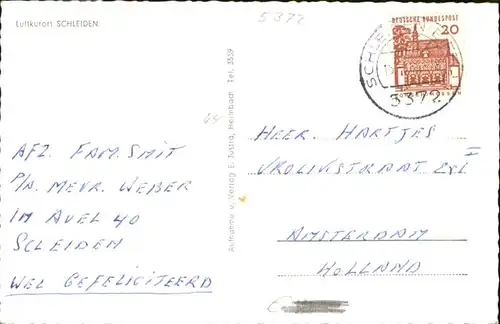 5372
Luftkurort SCHLEIDEN
DEUTSCHE BUNDESPOST
20
SCHLEIDEN
5372
Aufnahme u. Verlag E. Justra, Heimbach Tel. 3539
64
AFZ. FAM. SMIT
P/A. MEVR. WEBER
IM AUEL 40
SCLEIDEN
WEL GEFELICITEERD
HEER. HARTJES
VROLIKSTRAAT I
AMSTERDAM
HOLLAND